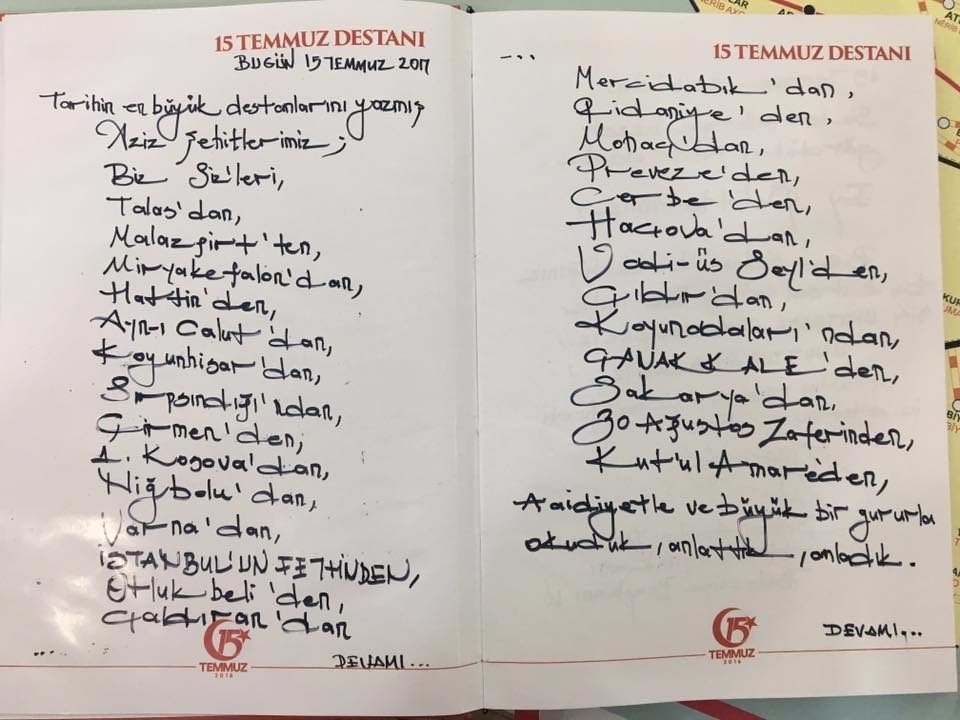 15 TEMMUZ DESTANI
BUGÜN 15 TEMMUZ 2017
Tarihin en büyük destanlarını yazmış
Aziz şehitlerimiz;
Biz Siz'leri,
Talas'dan,
Malazgirt'ten,
Miryakefalon'dan,
Hattin'den,
Ayn-ı Calut'dan,
Koyunhisar'dan,
Sırpsındığı'ndan,
Çirmen'den,
1. Kosova'dan,
Niğbolu'dan,
Varna'dan,
İSTANBUL'UN FETHİNDEN,
Otluk beli'den,
Çaldıran'dan
.....
DEVAMI...
15
TEMMUZ
2016
...
15 TEMMUZ DESTANI
Mercidabık'dan,
Ridaniye'den,
Mohaç'dan,
Preveze'den,
Cerbe'den,
Haçova'dan,
Vadi-üs Seyl'den,
Çıldır'dan,
Koyunadaları'ndan,
ÇANAKKALE'den,
Sakarya'dan,
30 Ağustos Zaferinden,
Kut'ul Amare'den,
Aaidiyetle ve büyük bir gururla
okuduk, anlattık, anladık.
DEVAMI...
15
TEMMUZ
2016